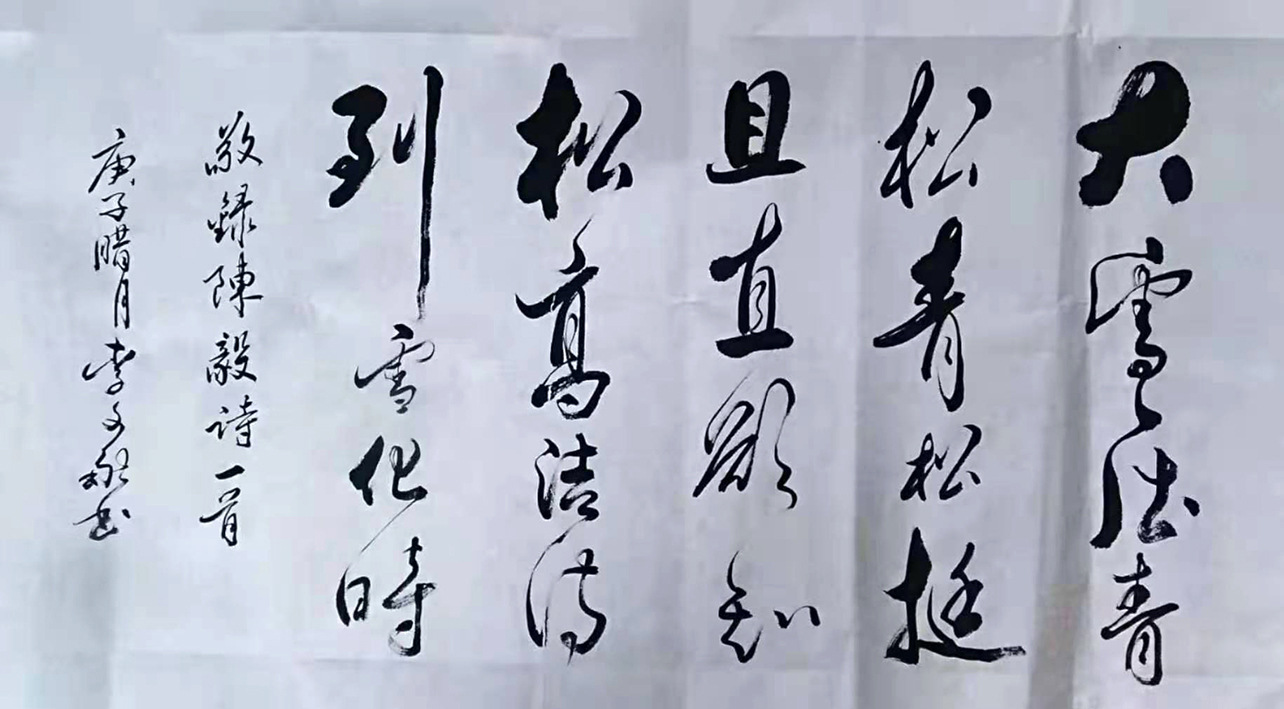 大雪压青
松青松挺
且直欲知
松高洁待
到雪化時
敬録陳毅詩一首
庚子腊月李文书